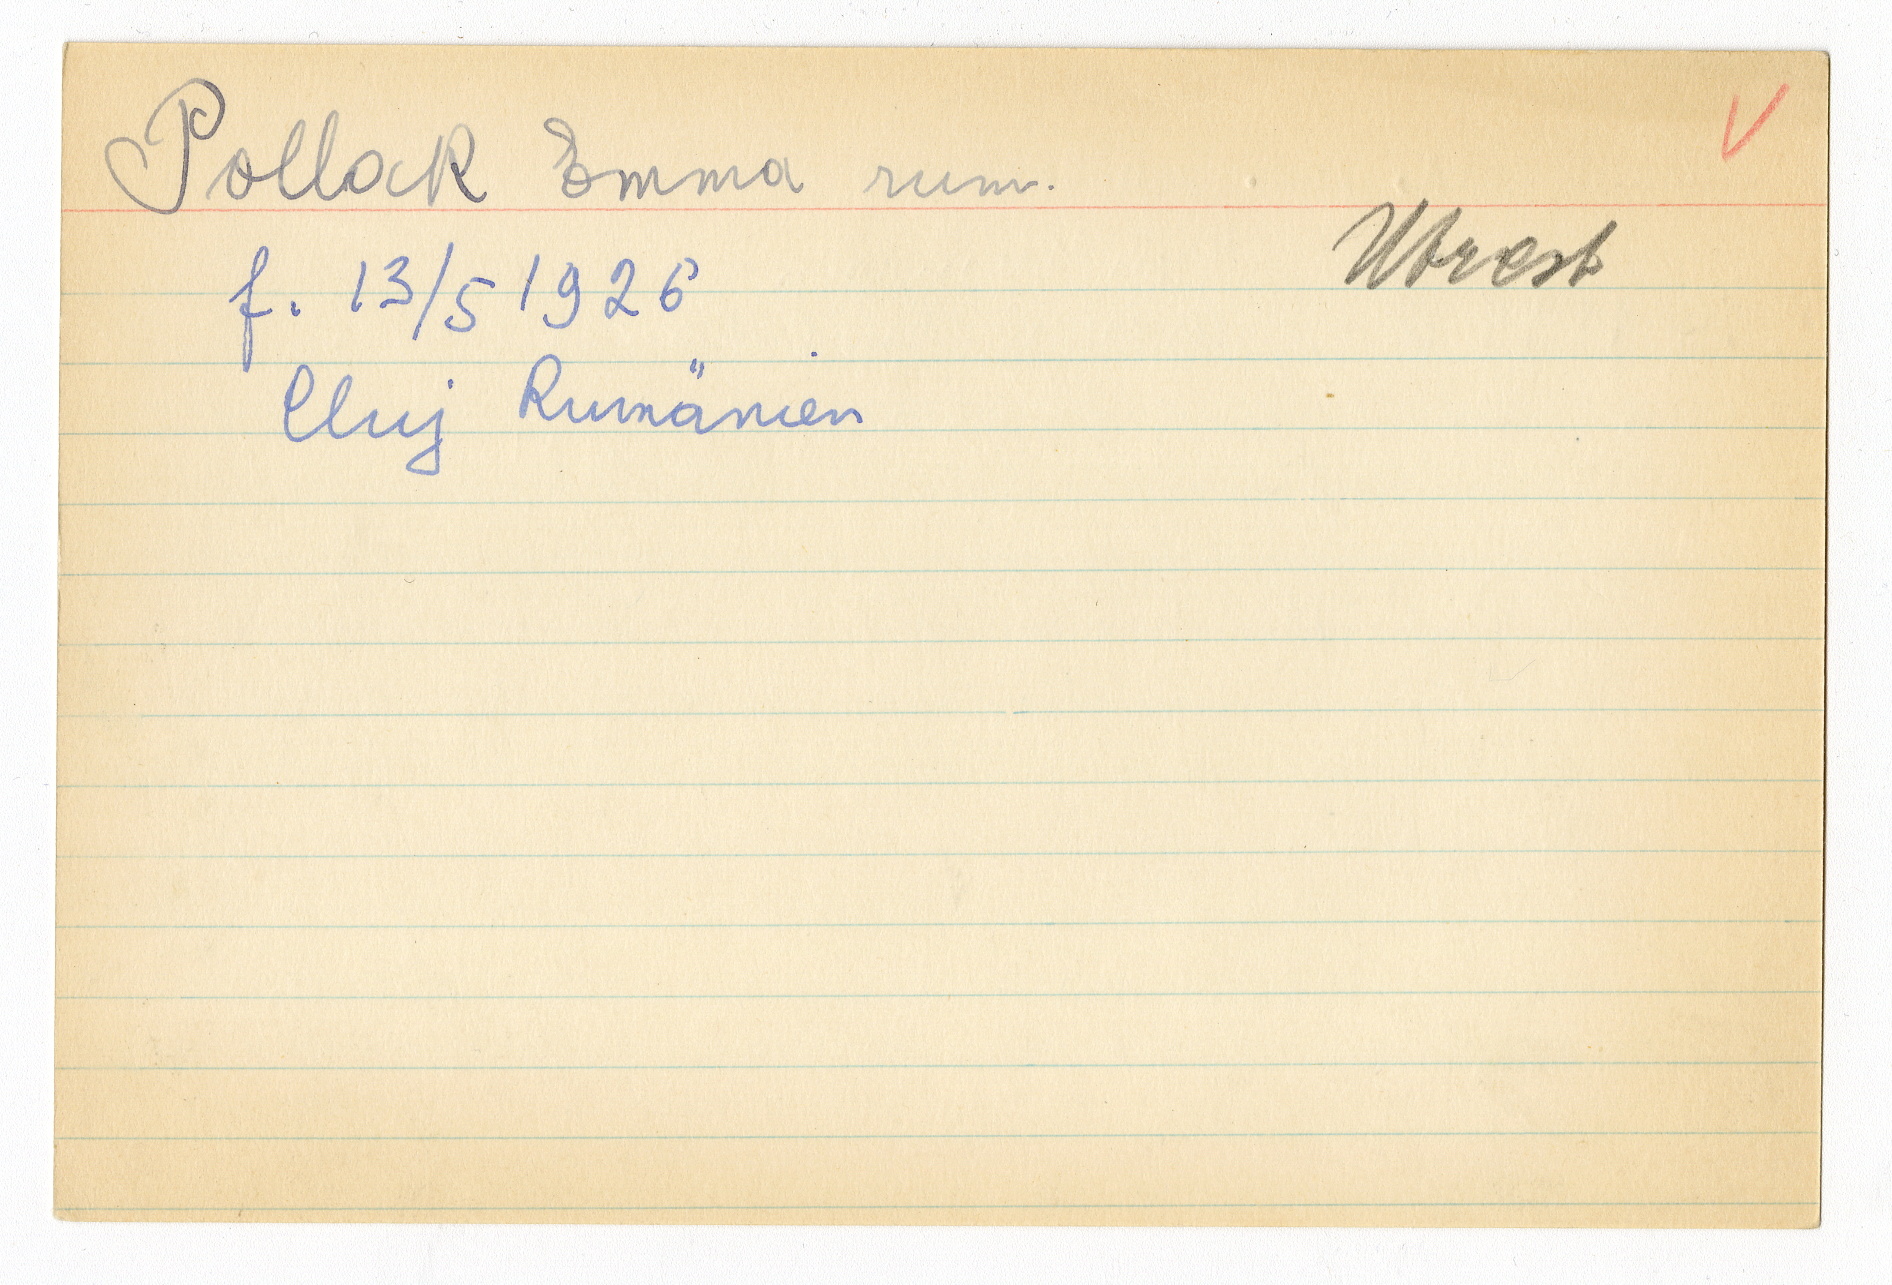 Pollack Emma rum.
Utrest
f. 13/5 1926
Cluj Rumänien